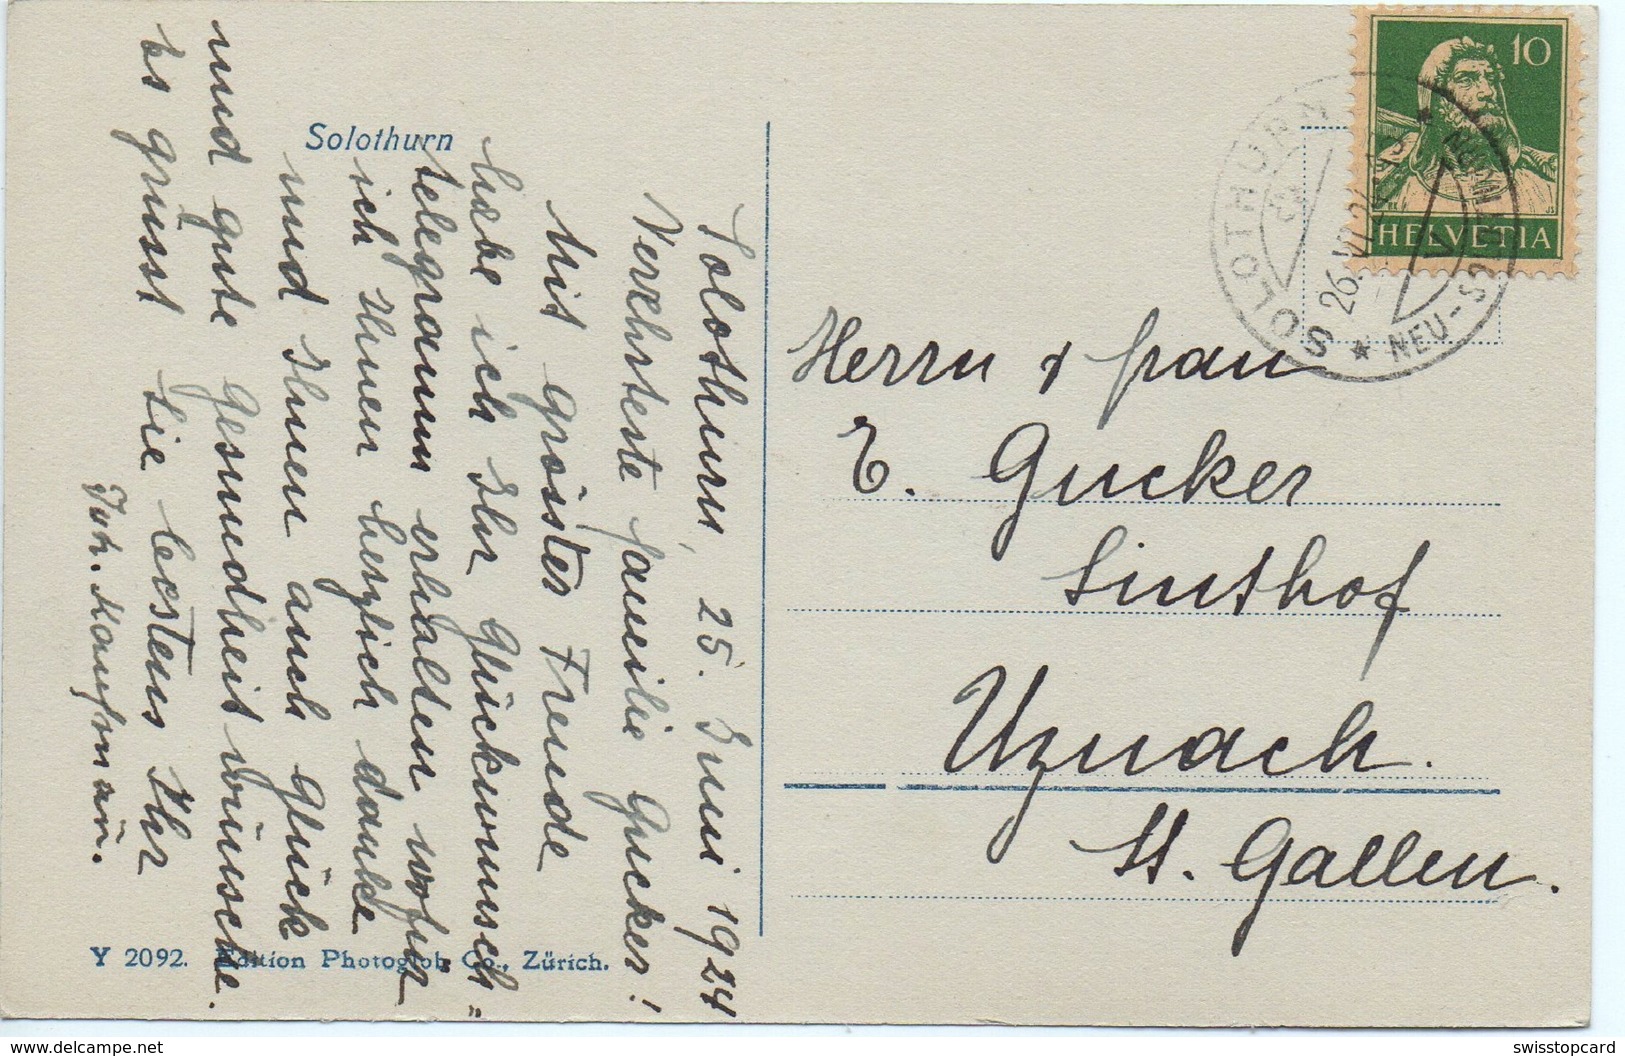 Solothurn
Solothurn, 25. Juni 1924
Verehrteste Familie Gucker!
Mit grösster Freude
habe ich Ihr Glückwunsch-
telegramm erhalten wofür
ich Ihnen herzlich danke
und Ihnen auch Glück
und gute Gesundheit wünsche.
Es grüsst Sie bestens Ihr
Kaufmann.
Y 2092. Edition Photoglob Co., Zürich.
10
HELVETIA
SOLOTHURN
26. VI. 24
NEU-SOLOTHURN
Herrn & Frau
E. Gucker
Linthof
Uznach.
St. Gallen.
delcampe.net
swisstopcard